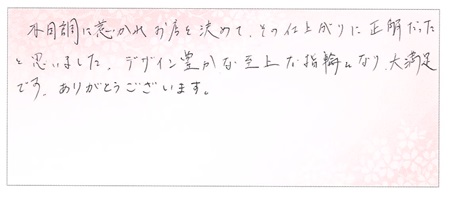 木目調に惹かれお店を決めて、その仕上がりに正解だった
と思いました。デザイン豊かな至上な指輪になり、大満足
です。ありがとうございます。